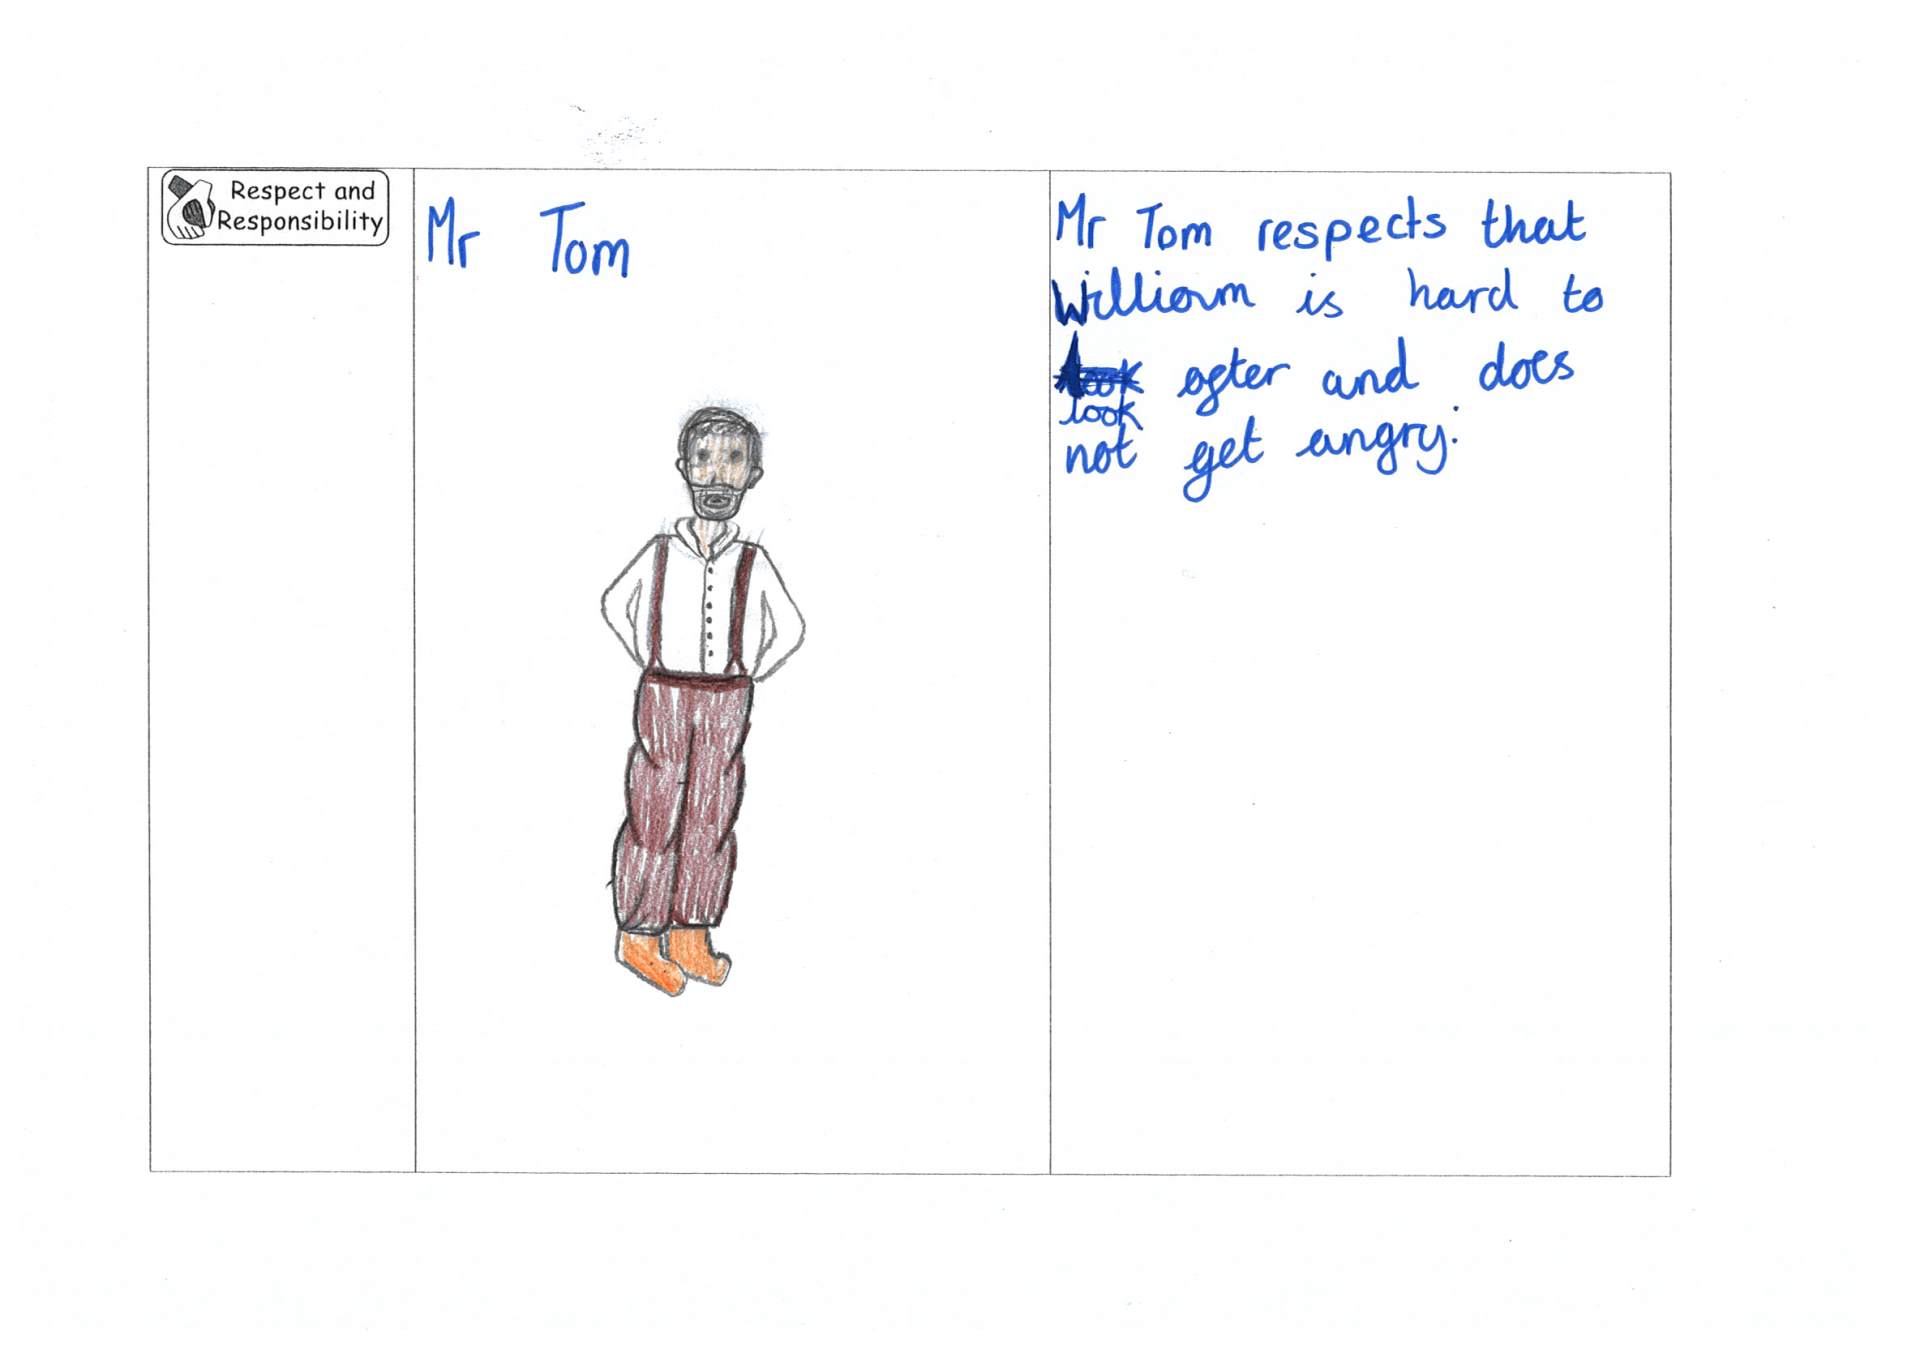 Respect and
Responsibility
Mr Tom
Mr Tom respects that
William is hard to
look after and does
look
not get angry.